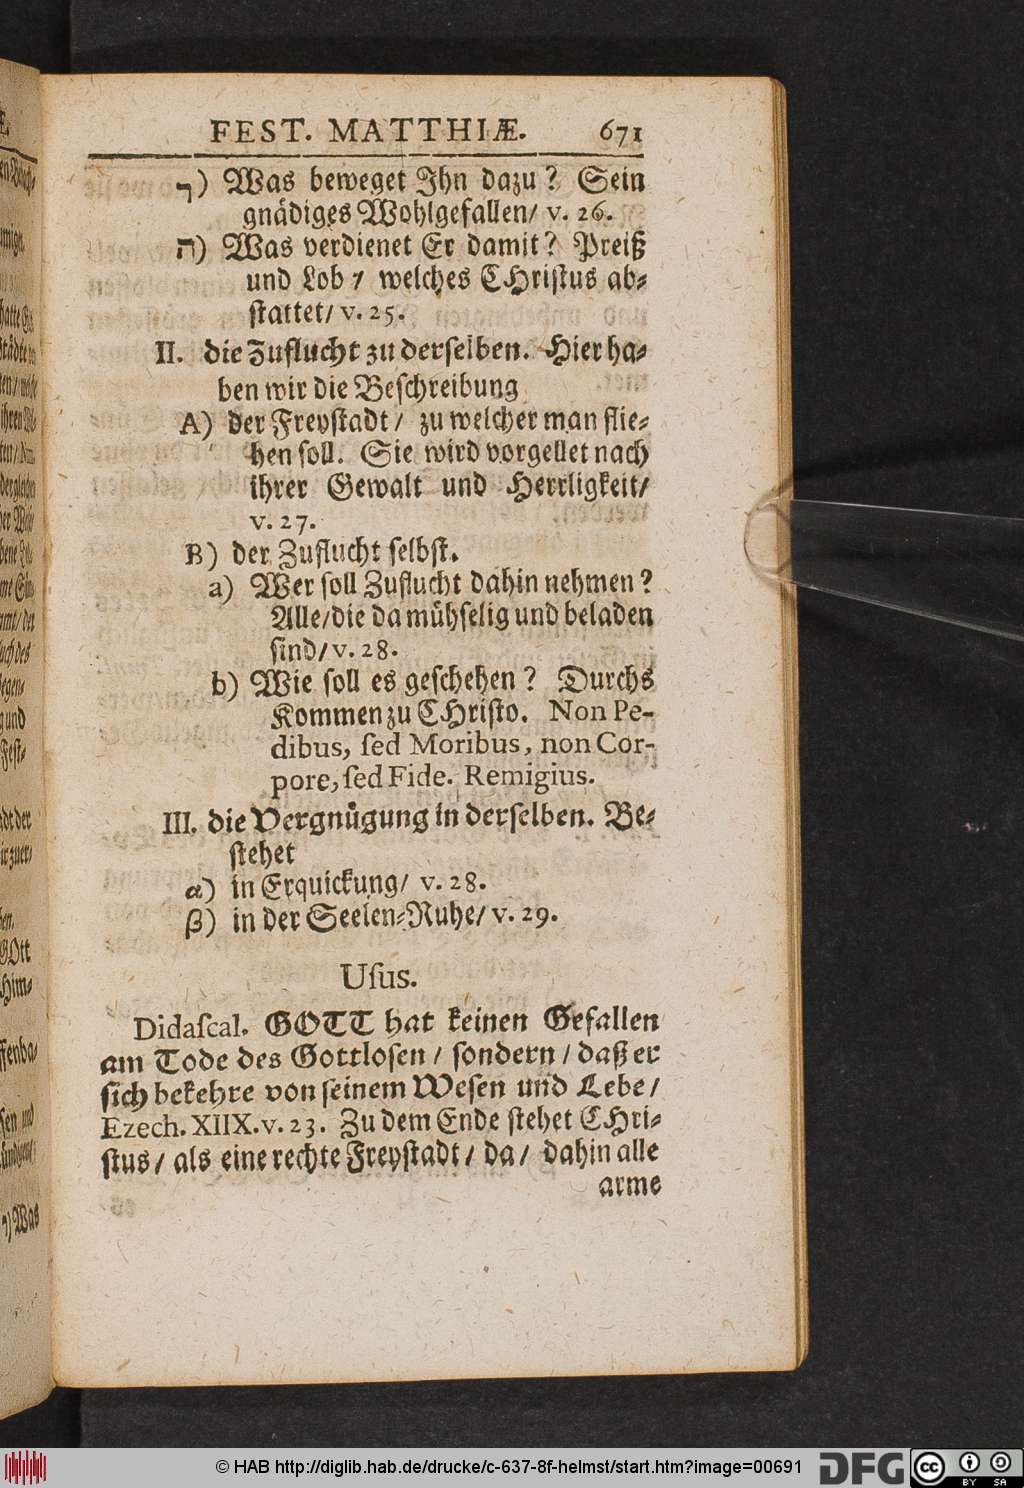 FEST. MATTHIÆ. 671
ד) Was beweget Ihn dazu? Sein
gnädiges Wohlgefallen/ v. 26.
ה) Was verdienet Er damit? Preiß
und Lob/ welches CHristus ab-
stattet/ v. 25.
II. die Zuflucht zu derselben. Hier ha-
ben wir die Beschreibung
A) der Freystadt/ zu welcher man flie-
hen soll. Sie wird vorgellet nach
ihrer Gewalt und Herrligkeit/
v. 27.
B) der Zuflucht selbst.
a) Wer soll Zuflucht dahin nehmen?
Alle/die da mühselig und beladen
sind/ v. 28.
b) Wie soll es geschehen? Durchs
Kommen zu CHristo. Non Pe-
dibus, sed Moribus, non Cor-
pore, sed Fide. Remigius.
III. die Vergnügung in derselben. Be-
stehet
α) in Erquickung/ v. 28.
β) in der Seelen-Ruhe/ v. 29.
Usus.
Didascal. GOTT hat keinen Gefallen
am Tode des Gottlosen/ sondern/ daß er
sich bekehre von seinem Wesen und Lebe/
Ezech. XIIX. v. 23. Zu dem Ende stehet CHri-
stus/ als eine rechte Freystadt/ da/ dahin alle
arme
© HAB http://diglib.hab.de/drucke/c-637-8f-helmst/start.htm?image=00691
DFG
cc BY SA